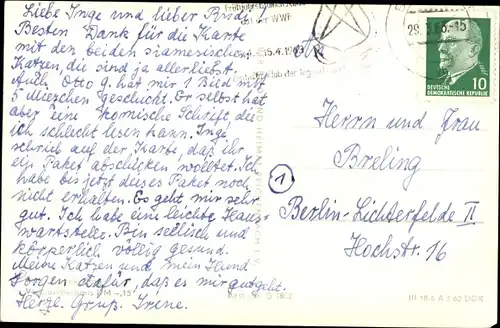 Liebe Inge und lieber Rudi
Besten Dank für die Karte
mit den beiden siamesischen
Katzen, die sind ja allerliebst.
Auch Otto g. hat mir 1 Bild mit
5 Muschen geschickt. Er selbst hat
aber eine komische Schrift, die
ich schlecht lesen kann. Inge
schrieb auf der Karte, daß ihr
ein Paket abschicken wolltet. Ich
habe bis jetzt dieses Paket noch
nicht erhalten. Es geht mir sehr
gut. Ich habe eine leichte Haus-
wartstelle. Bin seelisch und
körperlich völlig gesund.
Meine Katzen und mein Hund
sorgen dafür, daß es mir gut geht.
Herzl. Gruß. Irene.
29. 3.63.-15
10
DEUTSCHE
DEMOKRATISCHE REPUBLIK
Herrn und Frau
Breling
1
Berlin-Lichterfelde II
Hochstr. 16
III 18 6 A 3.62 DDR